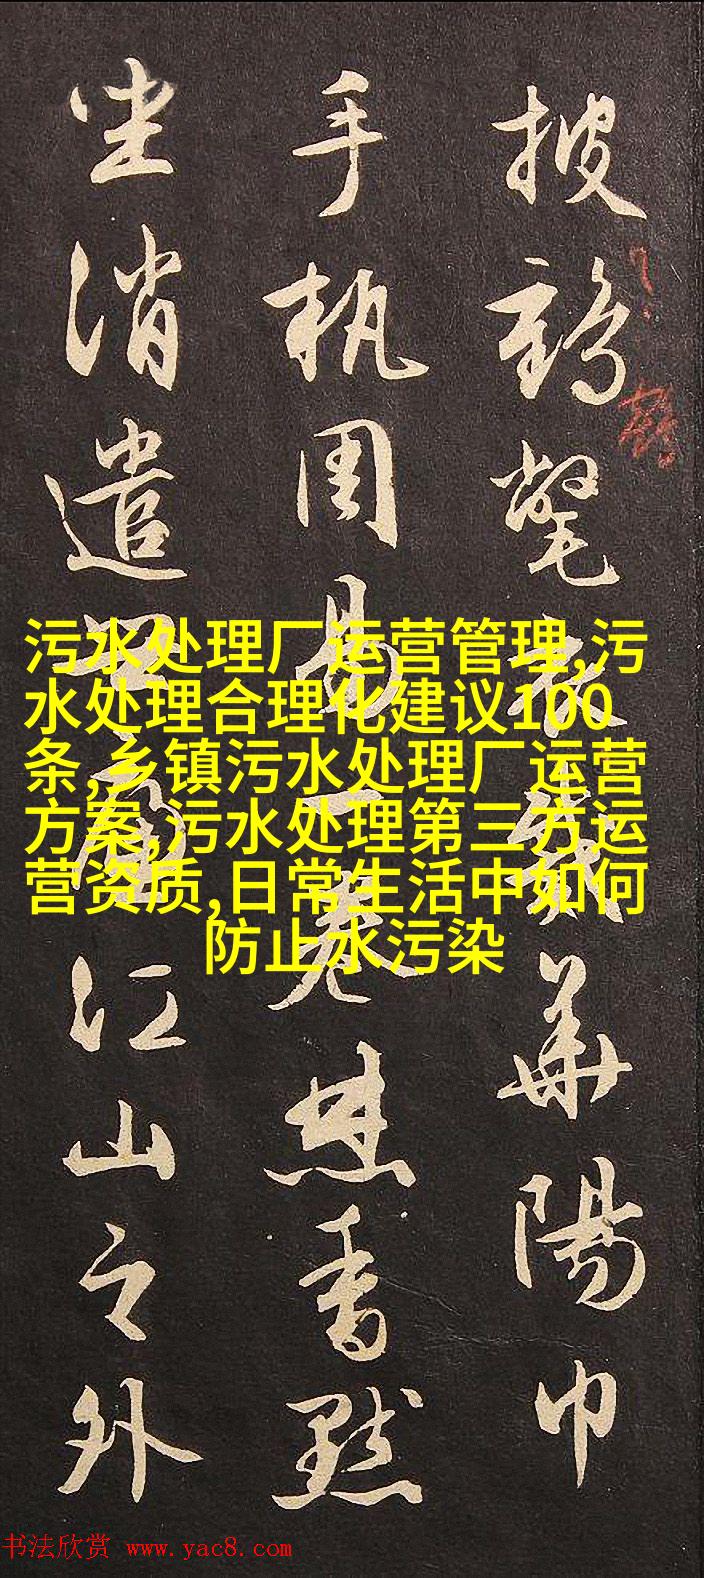 披鶴氅衣戴華陽巾
手執周易一卷焚香默
坐消遣世慮江山之外
鶴
污水处理厂运营管理,污
水处理合理化建议100
条,乡镇污水处理厂运营
方案,污水处理第三方运
营资质,日常生活中如何
防止水污染
书法欣赏 www.yac8.com